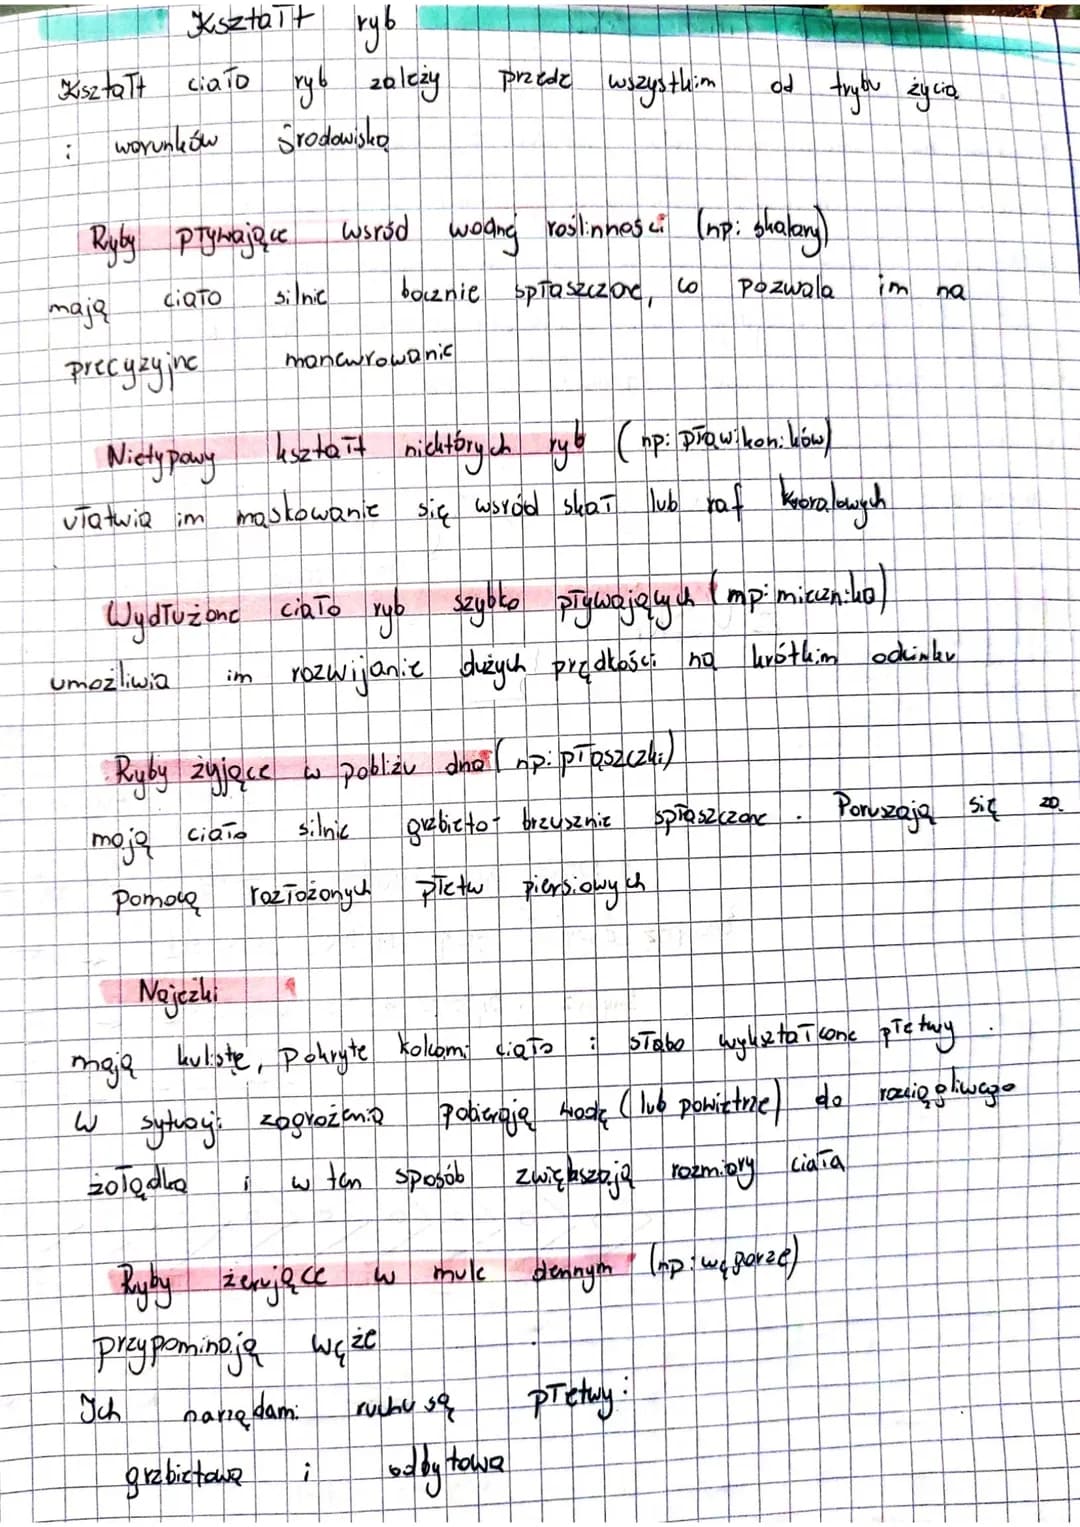 Kształt ryb
Kształt ciała ryb zależy przede wszystkim od trybu życia
i warunków środowiska
Ryby pływające wsród wodnej roślinności (np: skalary)
mają ciało silnie bocznie spłaszczone, co pozwala im na
precyzyjne manewrowanie
Nietypowy kształt niektórych ryb (np: pławikoników)
ułatwia im maskowanie się wsród skał lub raf koralowych
Wydłużone ciało ryb szybko pływających (np: miecznika)
umożliwia im rozwijanie dużych prędkości na krótkim odcinku
Ryby żyjące w pobliżu dna (np: płaszczki)
mają ciało silnie grzbieto-brzusznie spłaszczone. Poruszają się za
pomocą rozłożonych płetw piersiowych
Najeżki
mają kuliste, pokryte kolcami ciało i słabo wykształcone płetwy.
W sytuacji zagrożenia pobierają wodę (lub powietrze) do rozciągliwego
żołądka i w ten sposób zwiększają rozmiary ciała
Ryby żerujące w mule dennym (np: węgorze)
przypominają węże
Ich narządami ruchu są płetwy:
grzbietowa i odbytowa